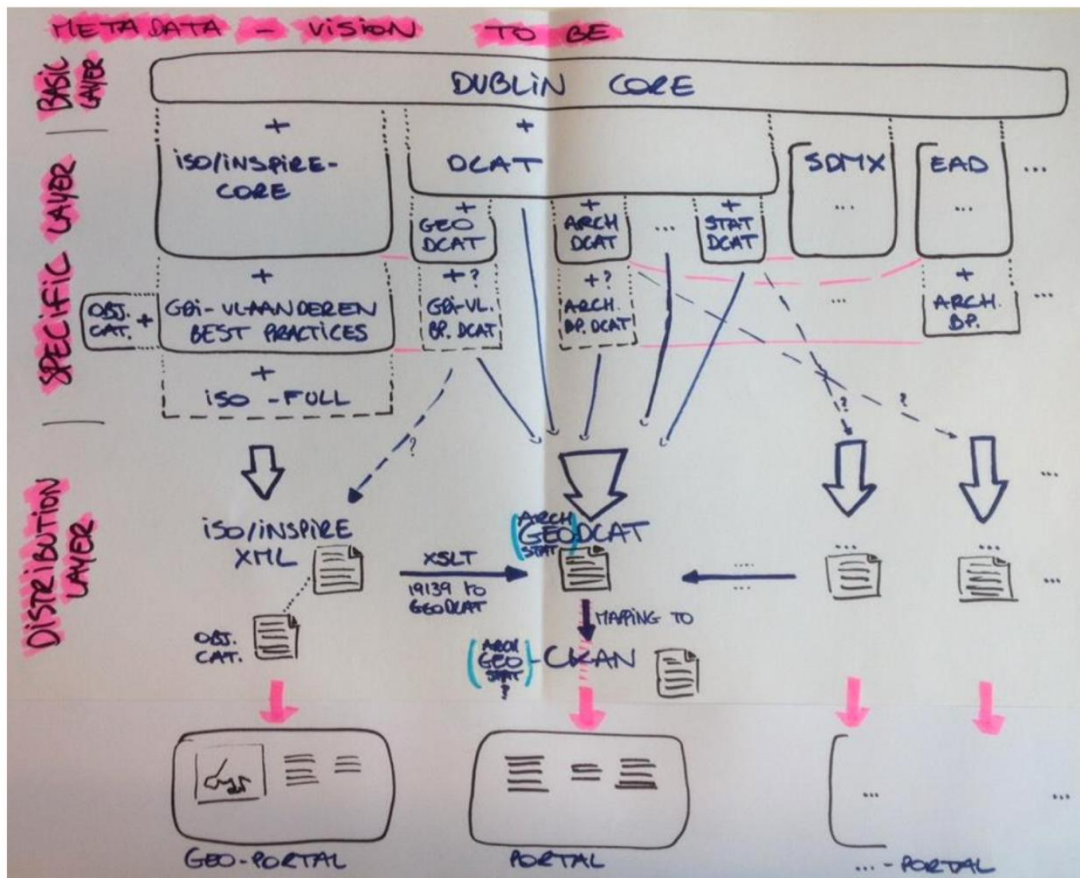 METADATA - VISION TO BE
BASIC LAYER
DUBLIN CORE
SPECIFIC LAYER
+ + 
ISO/INSPIRE-CORE
DCAT
SDMX
...
EAD
...
...
+
GEO DCAT
+
ARCH DCAT
...
+
STAT DCAT
OBJ. CAT. +
+
GDI-VLAANDEREN
BEST PRACTICES
+?
GDI-VL. BP. DCAT
+?
ARCH. BP. DCAT
...
+
ARCH. BP.
...
+
ISO - FULL
?
?
?
DISTRIBUTION LAYER
ISO/INSPIRE
XML
ARCH
GEODCAT
STAT
...
...
...
XSLT
19139 to
GEODCAT
....
....
...
OBJ.
CAT.
MAPPING TO
ARCH
GEO -CKAN
STAT
?
...
...
GEO-PORTAL
PORTAL
...-PORTAL